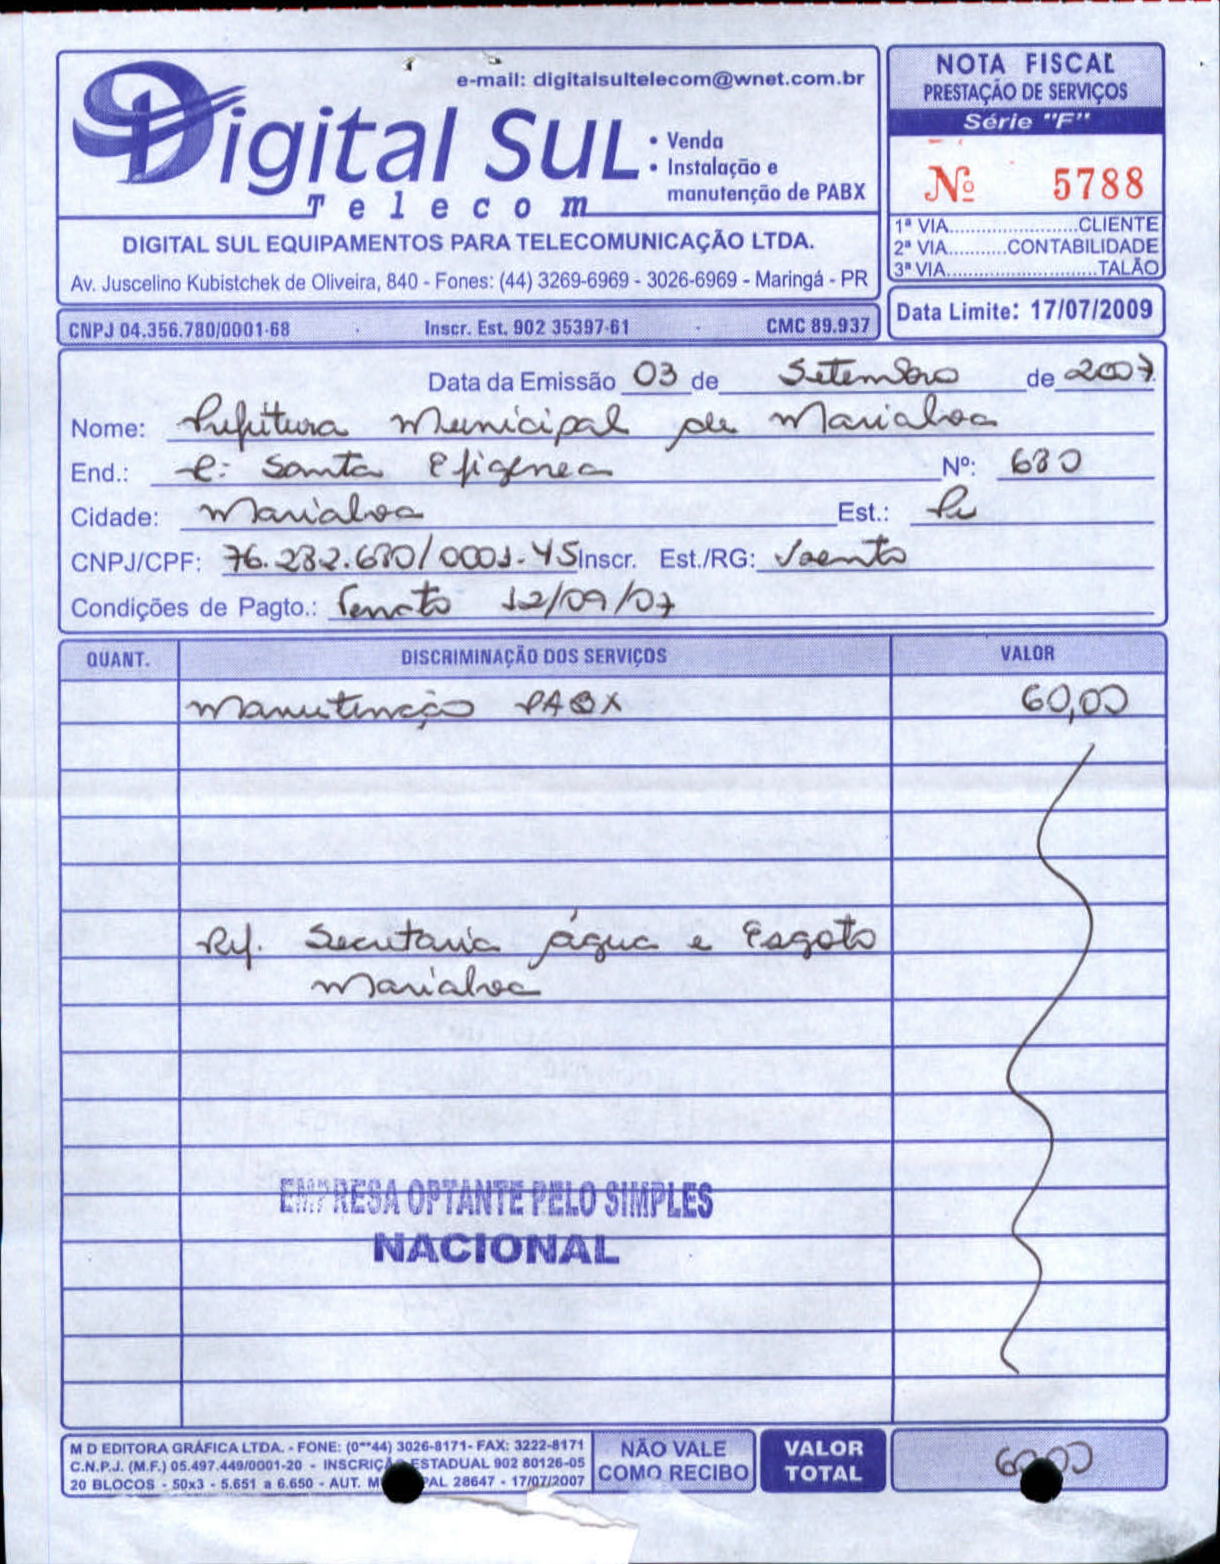 e-mail: digitalsultelecom@wnet.com.br
Digital SUL
Telecom
• Venda
• Instalação e
manutenção de PABX
DIGITAL SUL EQUIPAMENTOS PARA TELECOMUNICAÇÃO LTDA.
Av. Juscelino Kubistchek de Oliveira, 840 - Fones: (44) 3269-6969 - 3026-6969 - Maringá - PR
CNPJ 04.356.780/0001-68 Inscr. Est. 902 35397-61 CMC 89.937
NOTA FISCAL
PRESTAÇÃO DE SERVIÇOS
Série "F"
Nº 5788
1ª VIA........................CLIENTE
2ª VIA...........CONTABILIDADE
3ª VIA............................TALÃO
Data Limite: 17/07/2009
Data da Emissão 03 de Setembro de 2007
Nome: Prefeitura Municipal de Marialva
End.: R: Santa Efigenea Nº: 680
Cidade: Marialva Est.: Pr
CNPJ/CPF: 76.282.680/0001-45 Inscr. Est./RG: Isento
Condições de Pagto.: 12/09/07
QUANT. DISCRIMINAÇÃO DOS SERVIÇOS VALOR
Manutenção PABX 60,00
Ref. Secretaria água e Esgoto
Marialva
EMPRESA OPTANTE PELO SIMPLES
NACIONAL
M D EDITORA GRÁFICA LTDA. - FONE: (0**44) 3026-8171- FAX: 3222-8171
C.N.P.J. (M.F.) 05.497.449/0001-20 - INSCRIÇÃO ESTADUAL 902 80126-05
20 BLOCOS - 50x3 - 5.651 a 6.650 - AUT. M PAL 28647 - 17/07/2007
NÃO VALE
COMO RECIBO
VALOR
TOTAL
60,00